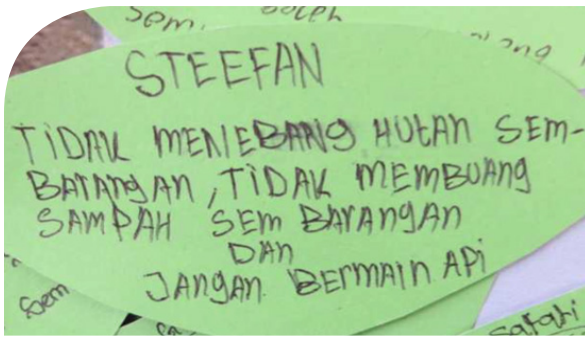 Sem. boleh
lang
STEEFAN
TIDAK MENEBANG HUTAN SEM-
BARANGAN, TIDAK MEMBUANG
SAMPAH SEM BARANGAN
DAN
JANGAN BERMAIN API
Sem
Safari